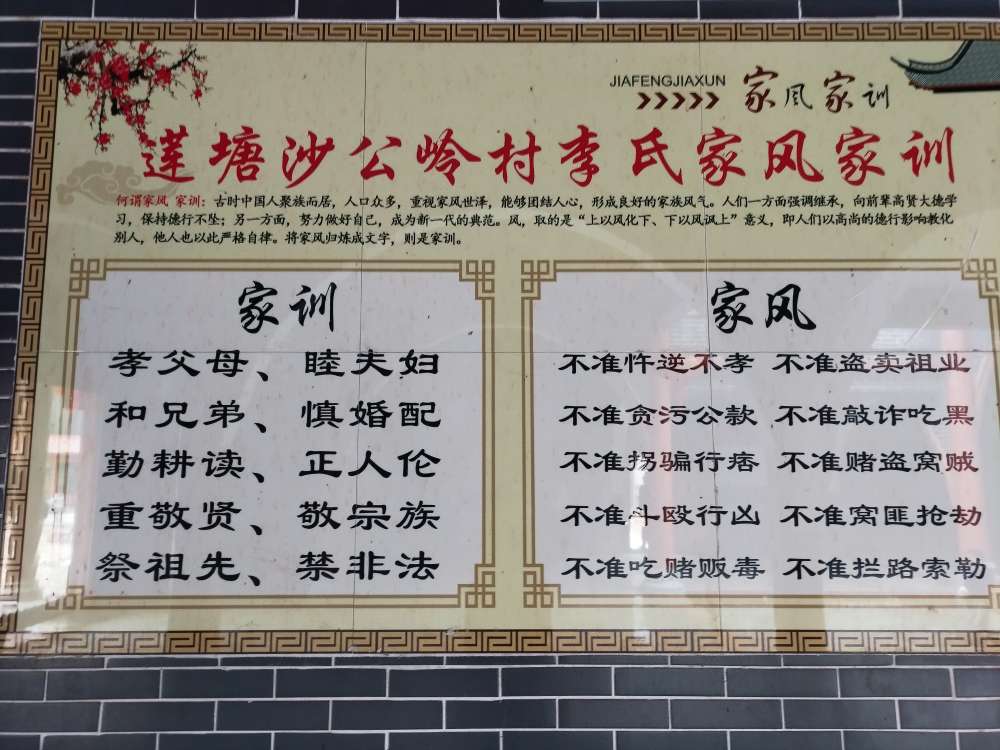 JIAFENGJIAXUN
家风家训
莲塘沙公岭村李氏家风家训
何谓家风 家训：古时中国人聚族而居，人口众多，重视家风世泽，能够团结人心，形成良好的家族风气。人们一方面强调继承，向前辈高贤大德学
习，保持德行不坠；另一方面，努力做好自己，成为新一代的典范。风，取的是“上以风化下、下以风讽上”意义，即人们以高尚的德行影响教化
别人，他人也以此严格自律。将家风归炼成文字，则是家训。
家训
孝父母、睦夫妇
和兄弟、慎婚配
勤耕读、正人伦
重敬贤、敬宗族
祭祖先、禁非法
家风
不准忤逆不孝 不准盗卖祖业
不准贪污公款 不准敲诈吃黑
不准拐骗行痞 不准赌盗窝贼
不准斗殴行凶 不准窝匪抢劫
不准吃赌贩毒 不准拦路索勒